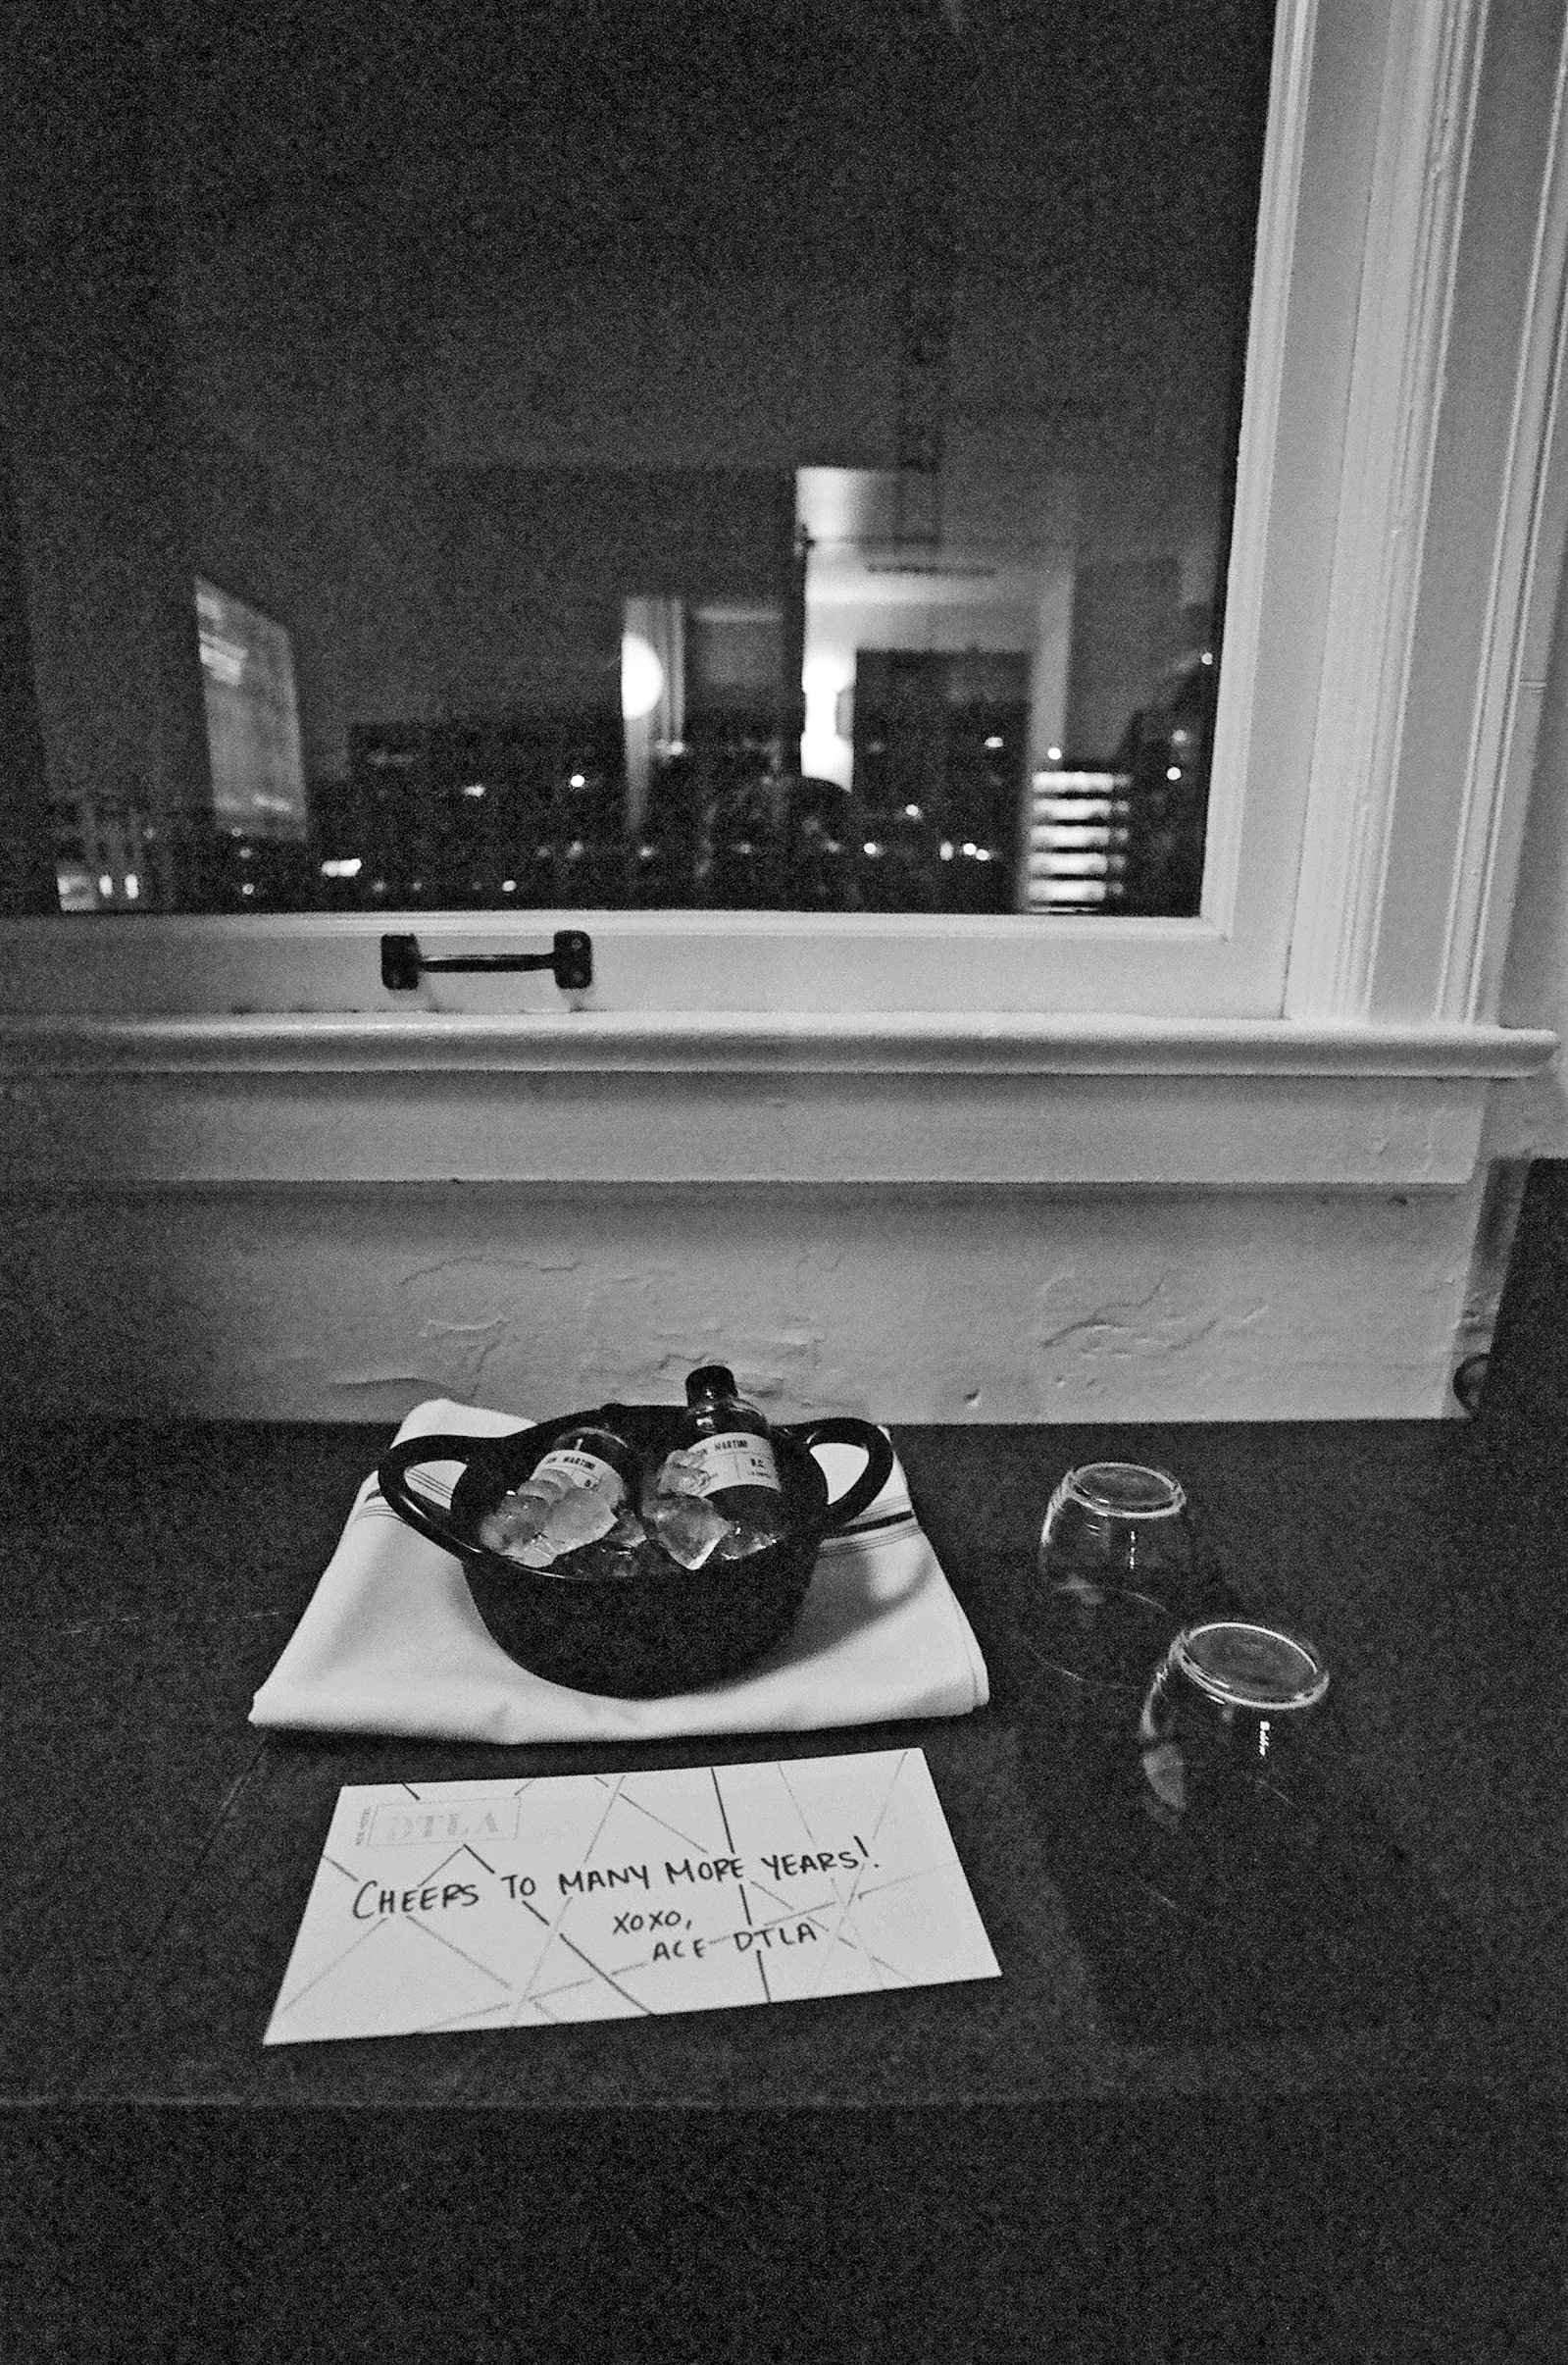 GIN MARTINI
MARTINI
DTLA
CHEERS TO MANY MORE YEARS!
XOXO,
ACE DTLA